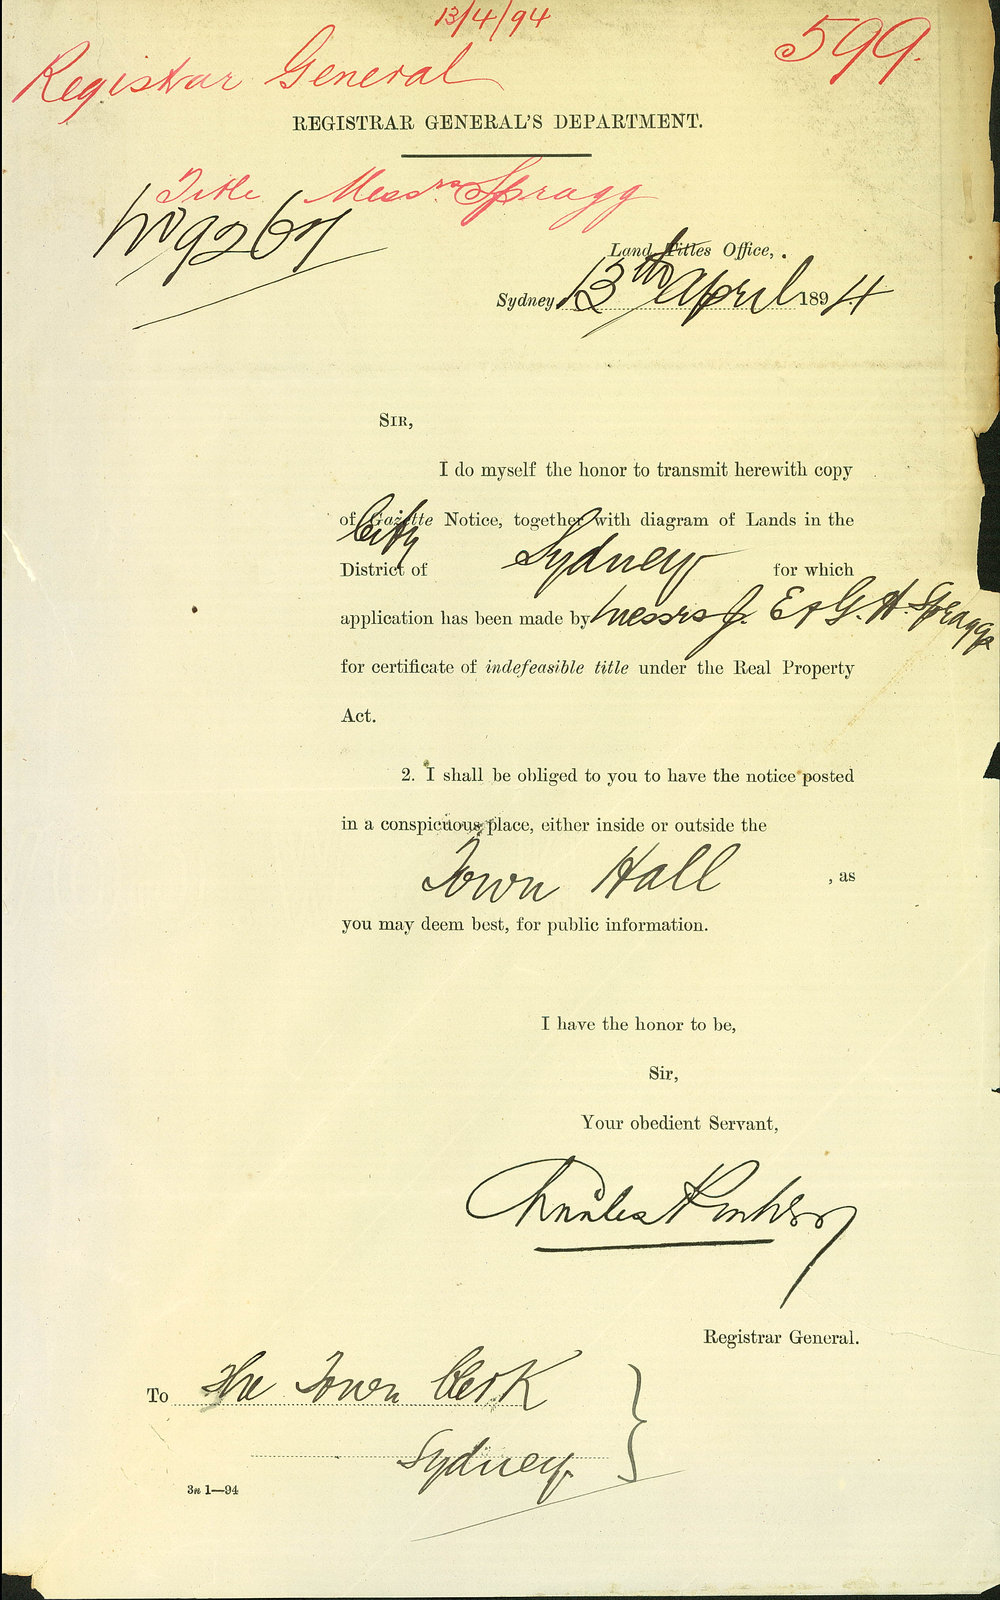 13/4/94
Registrar General
599.
REGISTRAR GENERAL'S DEPARTMENT.
Title Messrs Spragg
No 9267
Land Titles Office,
Sydney 13th April 1894
SIR,
I do myself the honor to transmit herewith copy
of Gazette Notice, together with diagram of Lands in the
City
District of Sydney for which
application has been made by Messrs J. E & G. H. Spragg
for certificate of indefeasible title under the Real Property
Act.
2. I shall be obliged to you to have the notice posted
in a conspicuous place, either inside or outside the
Town Hall , as
you may deem best, for public information.
I have the honor to be,
Sir,
Your obedient Servant,
Charles
Registrar General.
To The Town Clerk
Sydney.
3n 1—94